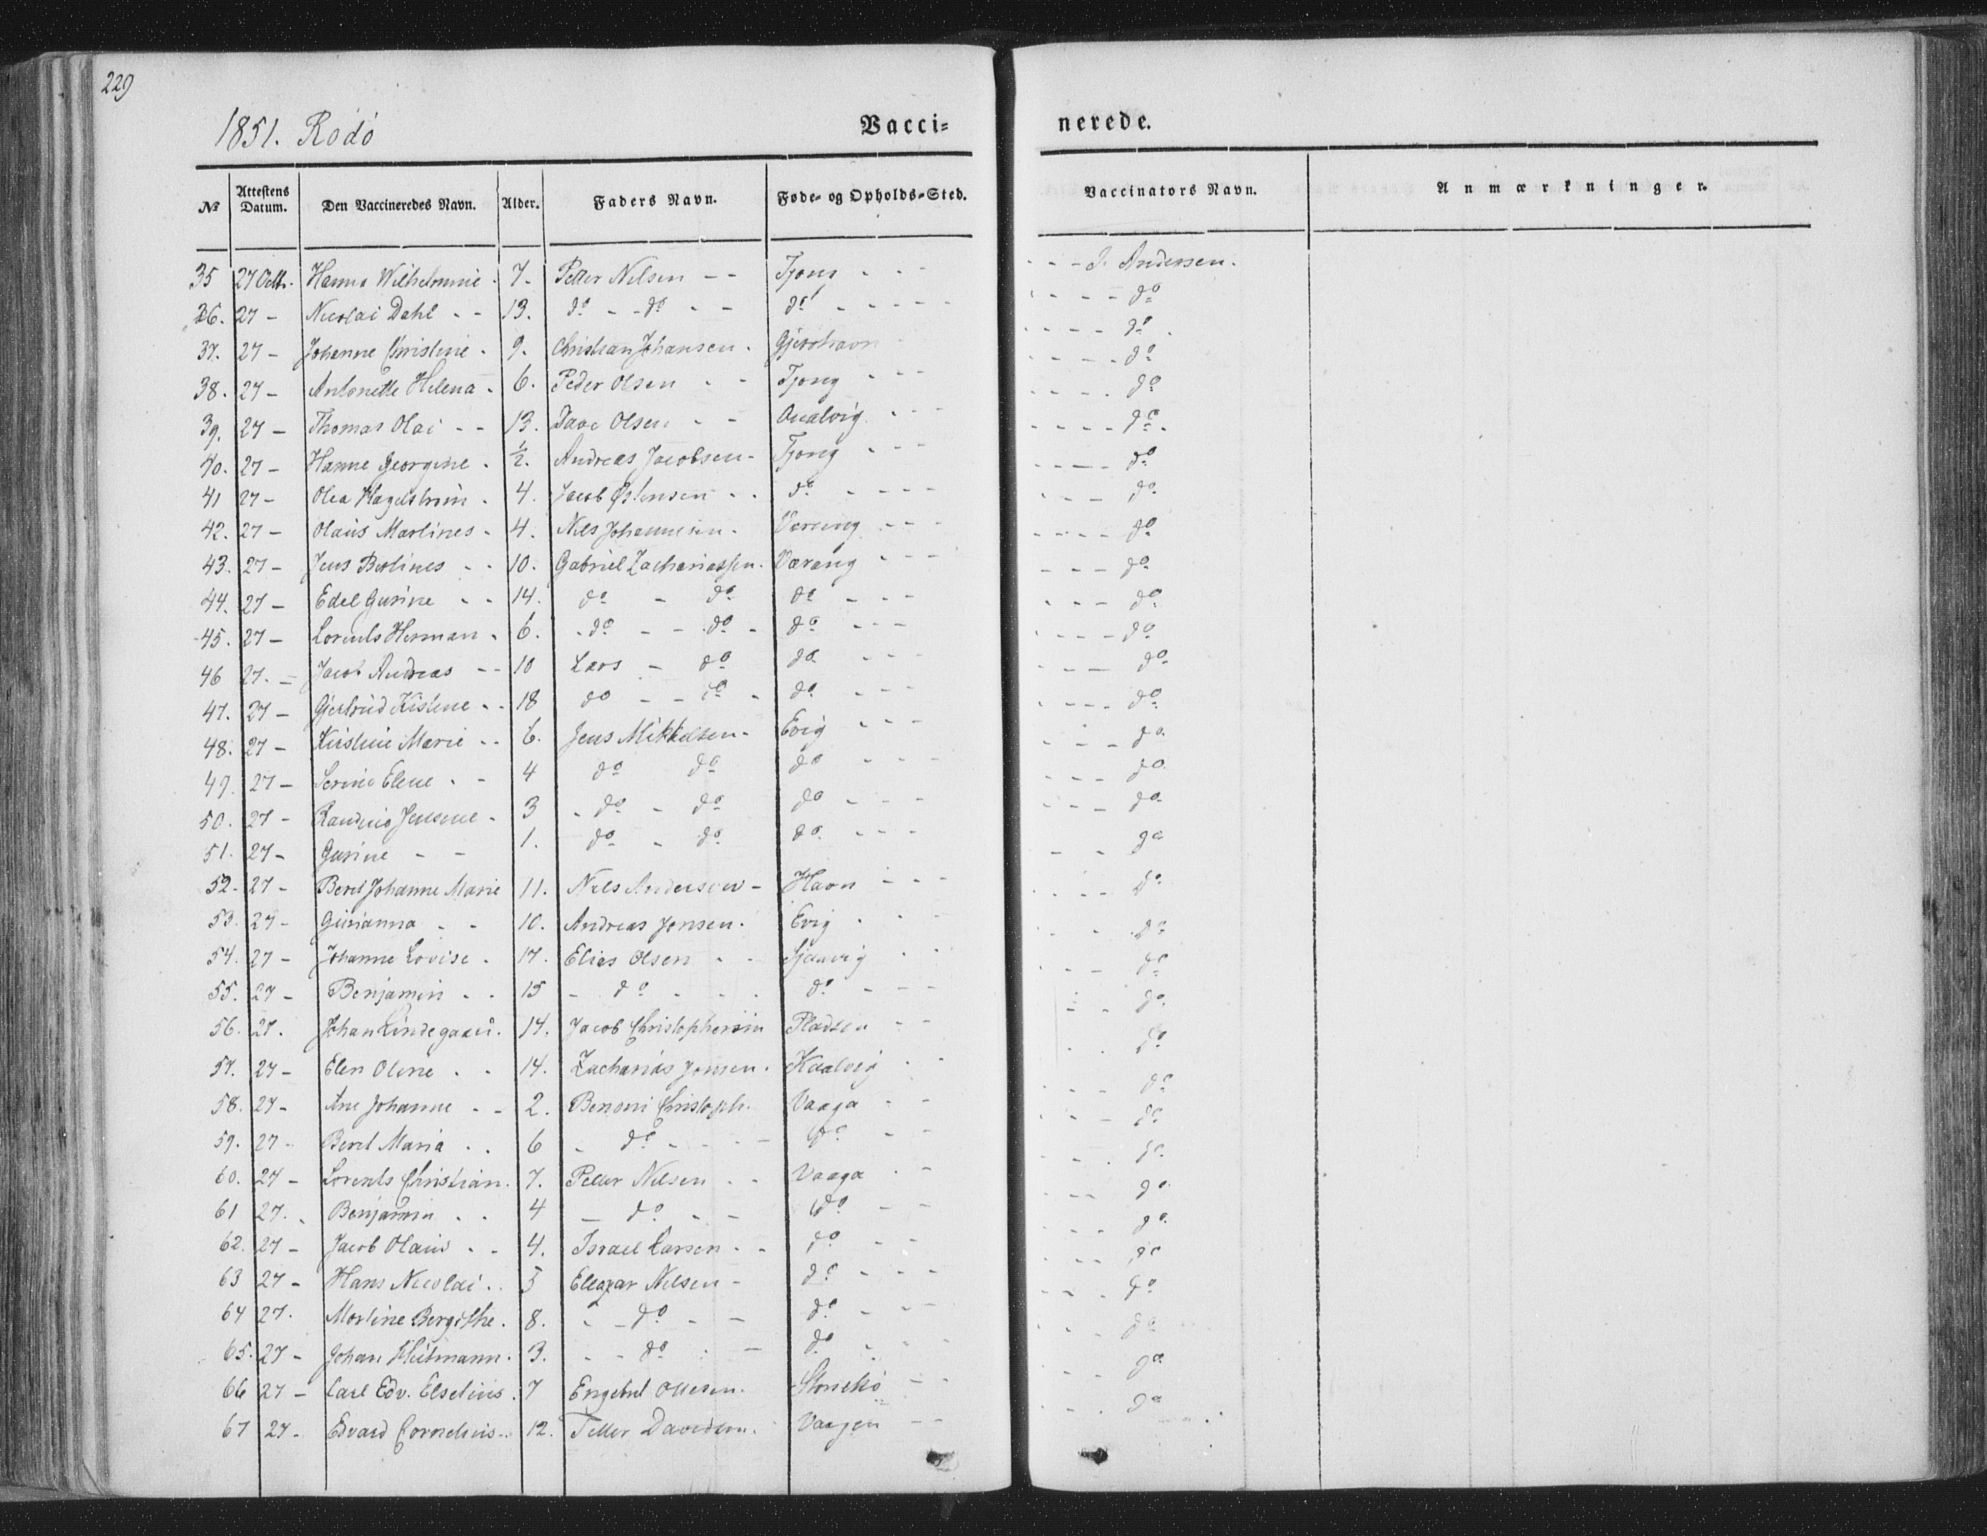 229
1851. Rödö
Vacci-
nerede.
№ Attestens Datum. Den Vaccineredes Navn. Alder. Faders Navn. Føde- og Opholds-Sted. Vaccinators Navn. Anmærkninger.
35 27 Octb. Hanna Wilhelmine 7. Petter Nilsen Tjong J. Andersen.
36. 27 - Nicolai Dahl 13. do do do do
37. 27 - Johanne Christine 9. Christian Johansen do
38. 27 - Antonette Helena 6. Peder Olsen Tjong do
39. 27 - Thomas Olai 13. Olsen do
40. 27 - Hanne Georgine ½. Andreas Jacobsen Tjong do
41 27 - Olea Hagelstrøm 4. Jacob do do
42. 27 - Olaus Martines 4. Nils Johannesen do
43. 27 - Jens 10. Gabriel Zachariassen Værang do
44. 27 - Edel Gurine 14. do do do do
45. 27 - Lorents Herman 6. do do do do
46 27. - Jacob Andreas 10 Lars do do do
47. 27 - Gjertrud 18 do do do do
48. 27 - Kirstine Marie 6. Jens Mikkelsen Evig do
49. 27 - Serine Elene 4 do do do do
50. 27 - Jensine 3 do do do do
51. 27 - Gurine 1. do do do do
52. 27 - Beret Johanne Marie 11. Nils Andersen Havn do
53. 27 - Gurianna 10. Andreas Jonsen Evig do
54. 27 - Johanne Lovise 17. Elias Olsen do
55. 27 - Benjamin 15 do do do
56. 27. Johan Lindegaard 14. Jacob Christophersen Pladsen do
57. 27 - Elen Oline 14. Zacharias Jonsen do
58. 27 - Ane Johanne 2. Benoni Christoph. Vaaga do
59. 27 - Beret Maria 6 do do do
60. 27 - Lorents Christian 7. Petter Nilsen Vaaga do
61 27. Benjamin 4 do do do
62. 27 - Jacob Olaus 4. Israel Larsen do do
63 27 - Hans Nicolai 5 Eleazar Nilsen do do
64 27. Martine Bergithe 8. do do do
65. 27 - Johan Heitmann 3. do do do
66 27 - Carl Edv. 7 Engebret do
67 27. Edvard Cornelius 12. Davidsen Vaagen